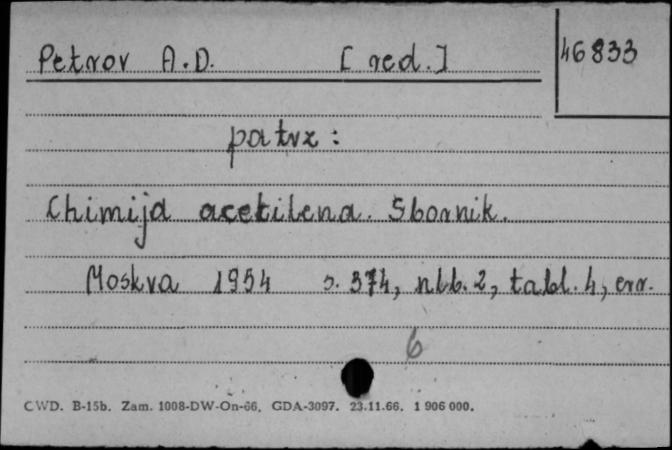 Petrov A.D. [red.]
46833
patrz:
Chimija acetilena. Sbornik.
Moskva 1954 s. 374, nlb. 2, tabl. 4, err.
6
CWD. B-15b. Zam. 1008-DW-On-66. GDA-3097. 23.11.66. 1 906 000.